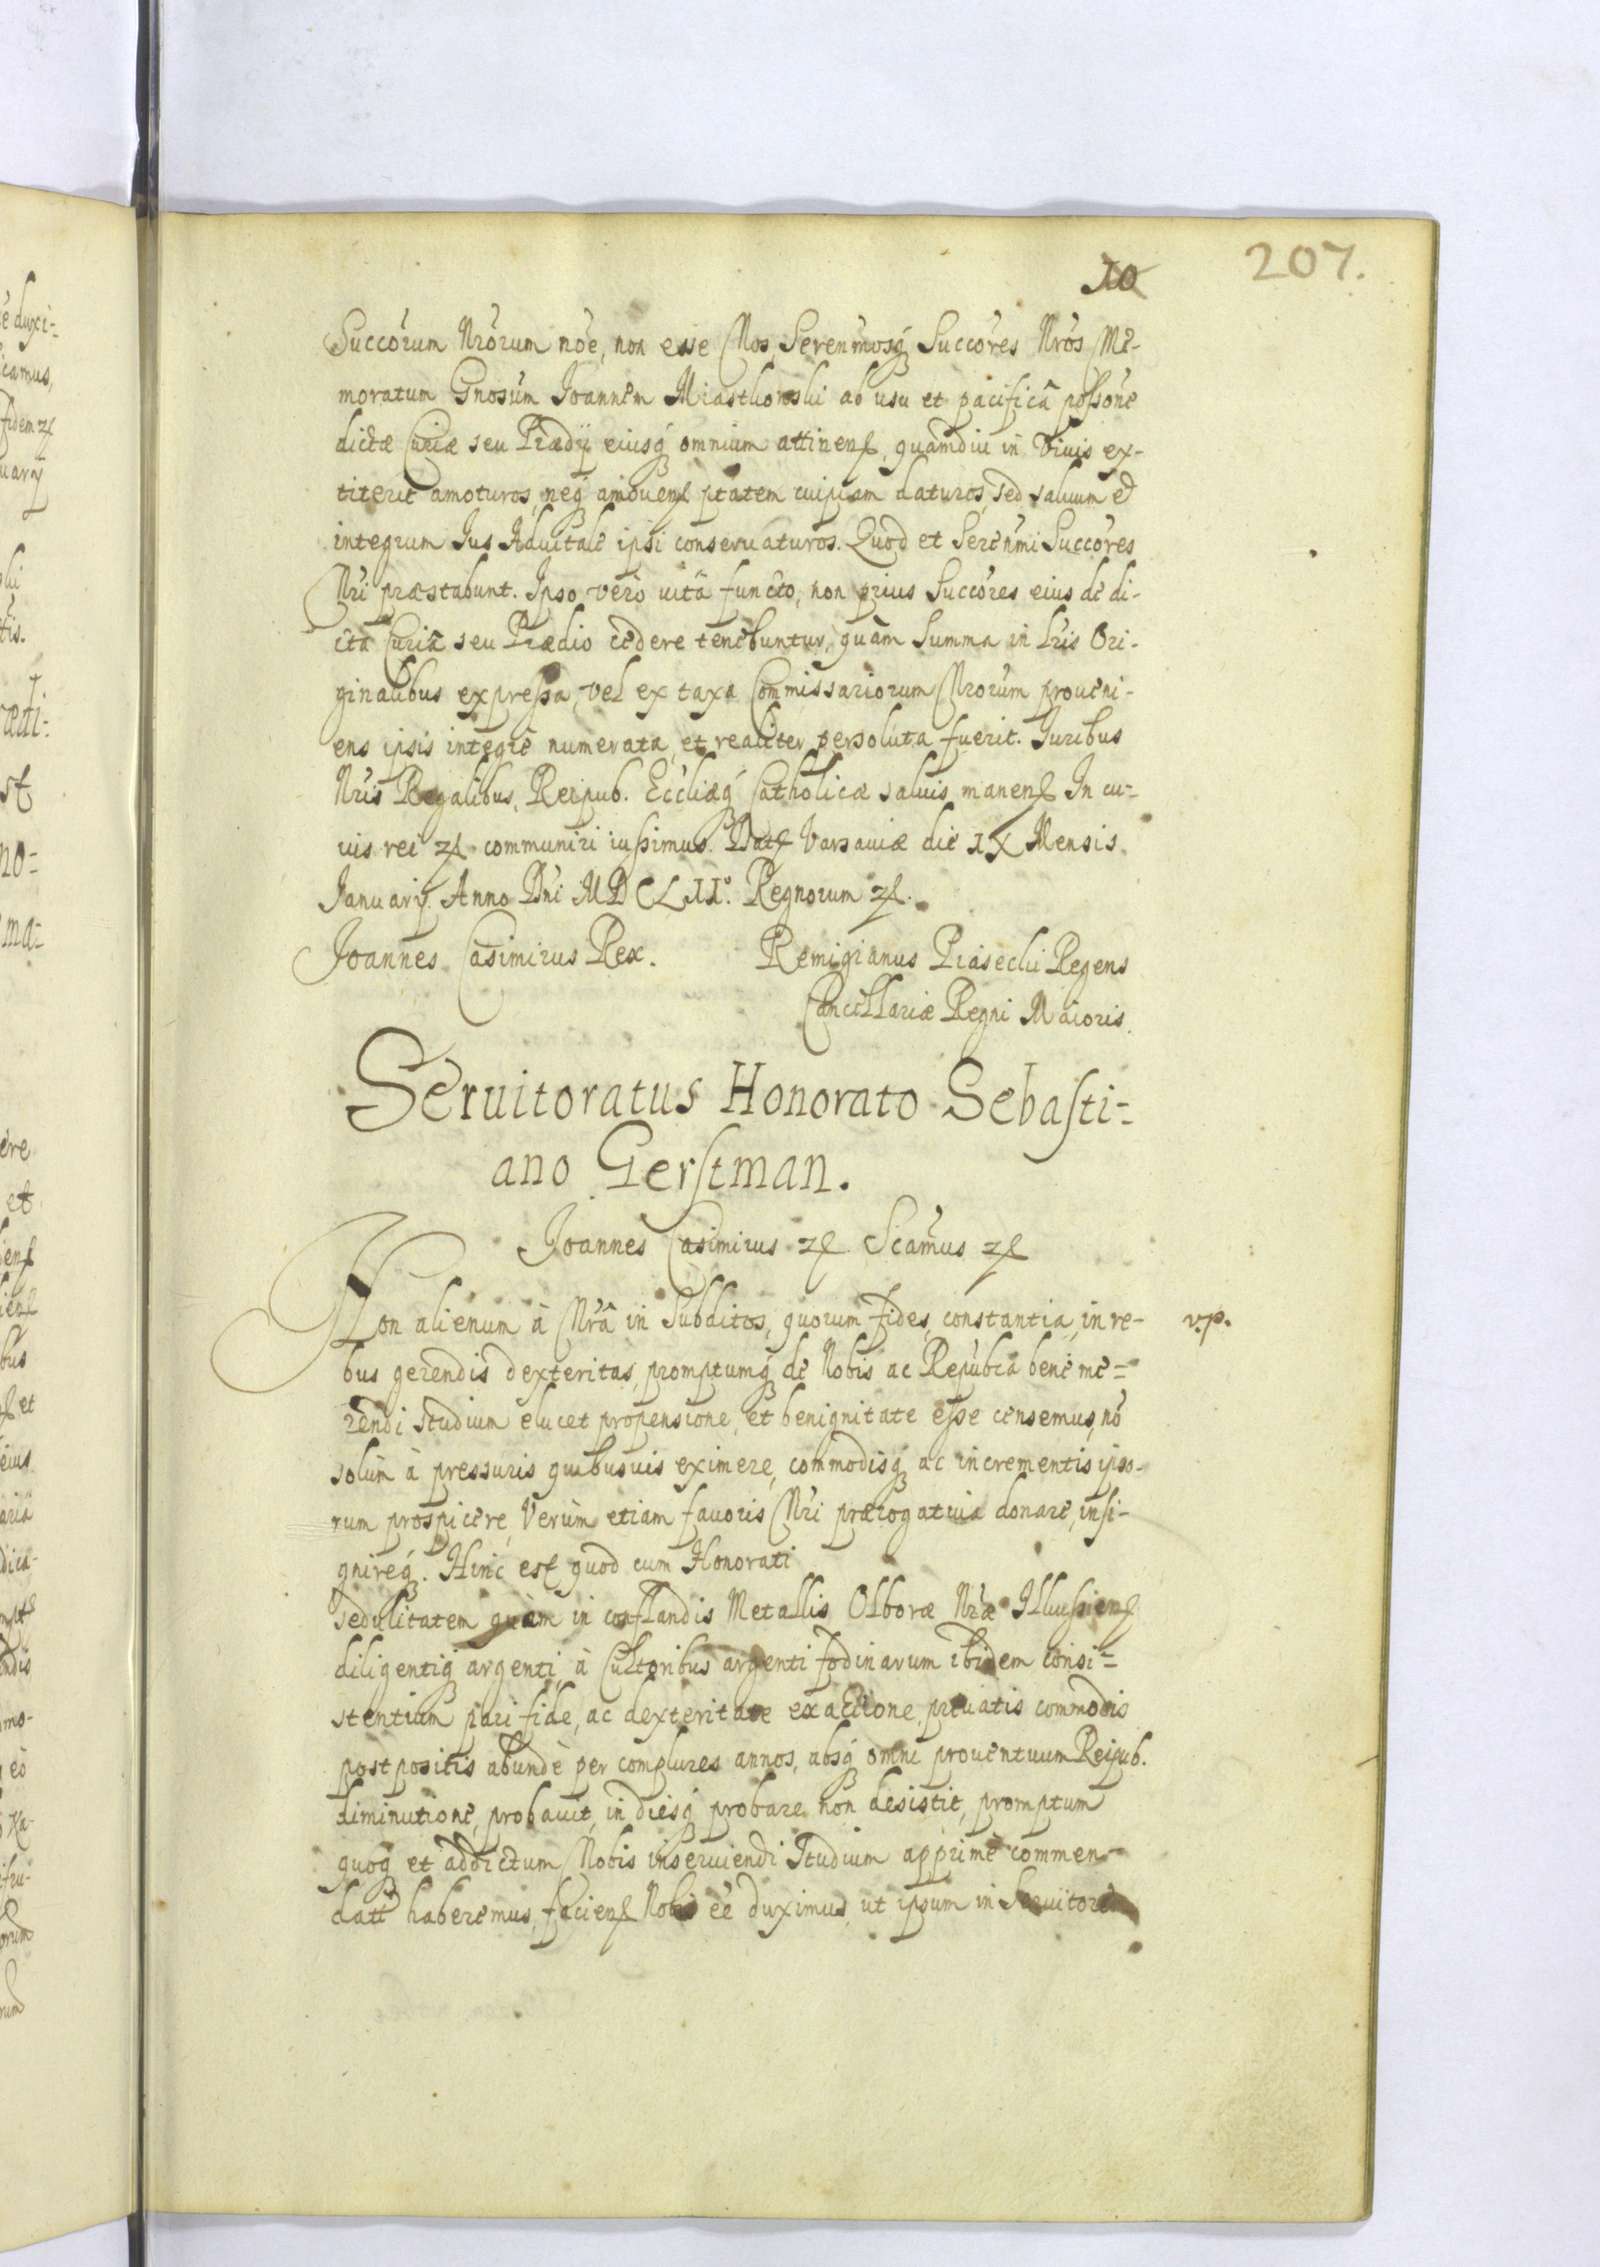 10
207.
Succorum Nrorum noe, non esse Nos Serenmosq Succores Nros Me-
moratum Gnosum Joannem Miastkowski ab usu et pacificâ possone
dictæ Curiæ seu Prædij eiusq omnium attinen, quamdiu in vivis ex-
titerit amoturos, neq amouen ptatem cuipiam daturos, sed saluum et
integrum Jus Aduitale ipsi conseruaturos. Quod et Serenmi Succores
Nri præstabunt. Ipso vero uitâ functo, non prius Succores eius de di-
ctâ Curiâ seu Prædio cedere tenebuntur, quàm summa in Lris Ori-
ginalibus expressa, vel ex taxa Commissariorum Nrorum proueni-
ens ipsis integrè numerata, et realiter persoluta fuerit. Juribus
Nris Regalibus, Reipub. Ecclæq Catholicæ saluis manen In cu-
ius rei communiri iussimus. Dat Varsauiæ die IX Mensis
Januarij. Anno Dni MDCLII°. Regnorum
Joannes Casimirus Rex. Remigianus Piasecki Regens
Cancellariæ Regni Maioris.
Seruitoratus Honorato Sebasti-
ano Gerstman.
Joannes Casimirus Scamus
Non alienum à Nrâ in Subditos, quorum fides, constantia, in re-
v.p.
bus gerendis dexteritas, promptumq de Nobis ac Repubca bene me-
rendi studium elucet propensione, et benignitate esse censemus, nō
solùm à pressuris quibusuis eximere, commodisq ac incrementis ipso-
rum prospicere, Verùm etiam fauoris Nri prærogatiua donare, insi-
gnireq. Hinc est quod cum Honorati
sedulitatem quàm in conflandis Metallis Olboræ Nræ Ilkussien
diligentiq argenti, à Cultoribus argenti fodinarum ibidem consi-
stentium pari fide, ac dexteritate exactione, priuatis commodis
postpositis abundè per complures annos, absq omni prouentuum Reipub.
diminutione, probauit, in diesq probare non desistit, promptum
quoq et addictum Nobis inseruiendi Studium apprimè commen-
datū haberemus, facien Nobis eē duximus, ut ipsum in Seruitorem